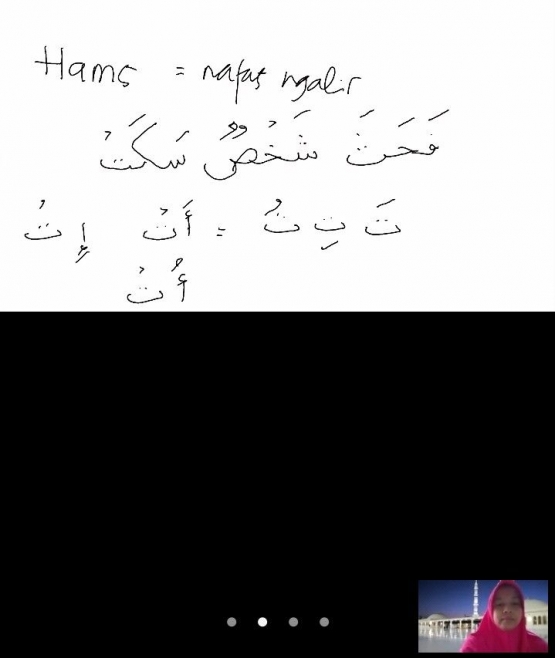 Hams = nafas ngalir
فَحَثَ شَخْصٌ سَكَتْ
تَ تِ تُ = أَتْ إِتْ
أُتْ